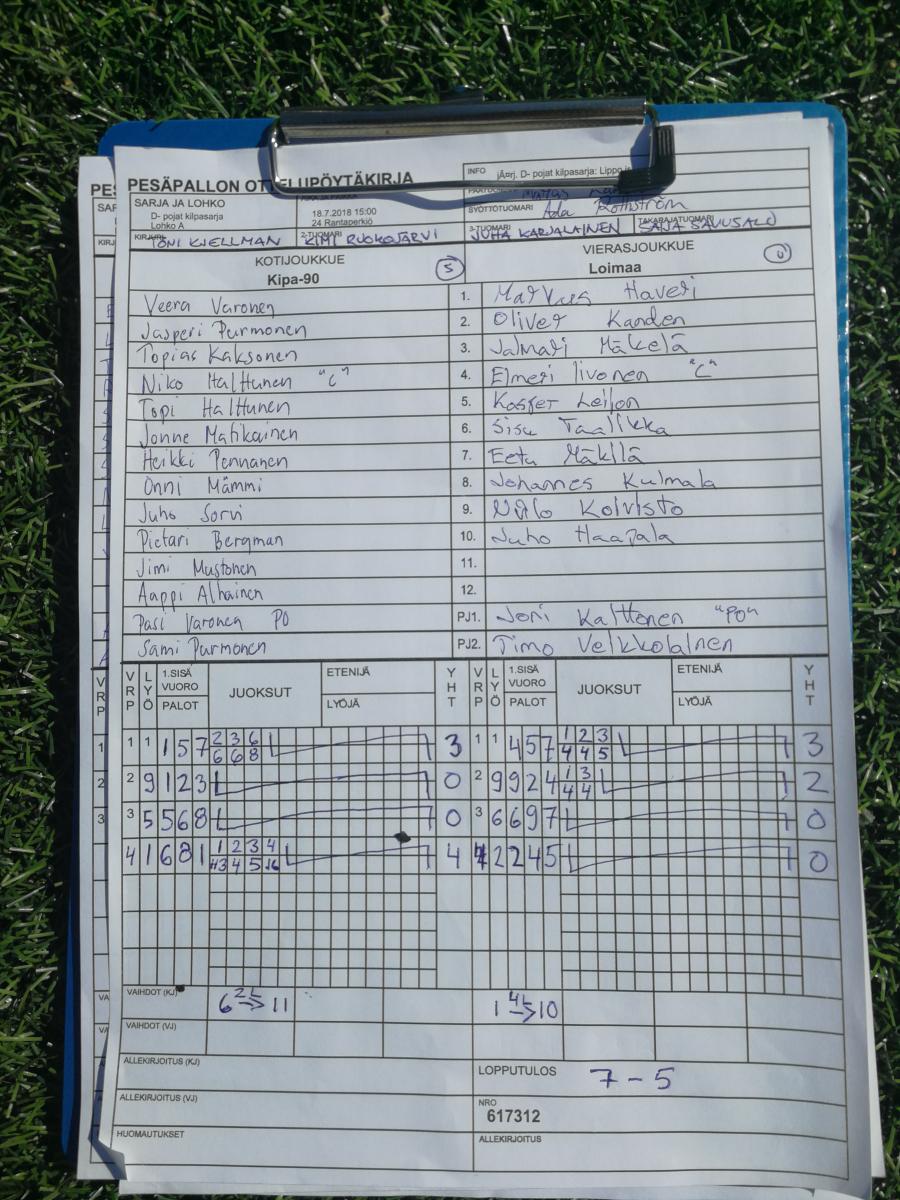 PESÄPALLON OTTELUPÖYTÄKIRJA
INFO jÄ¤rj. D- pojat kilpasarja: Lippo
SARJA JA LOHKO
D- pojat kilpasarja
Lohko A
18.7.2018 15:00
24 Rantaperkiö
SYÖTTÖTUOMARI Ada Rothström
KIRJURI TONI KJELLMAN
2-TUOMARI KIMI RUOKOJÄRVI
3-TUOMARI JUHA KARJALAINEN
TAKARAJATUOMARI SAIJA SAVUSALO
KOTIJOUKKUE
Kipa-90
5
VIERASJOUKKUE
Loimaa
0
Veera Varonen 1. Markus Haveri
Jasperi Purmonen 2. Oliver Kanden
Topias Kaksonen 3. Jalmari Mäkelä
Niko Halttunen "C" 4. Elmeri Iivonen "C"
Topi Halttunen 5. Kasper Leijon
Jonne Matikainen 6. Sisu Taalikka
Heikki Pennanen 7. Eetu Mäkilä
Onni Mämmi 8. Johannes Kulmala
Juho Sorvi 9. Niilo Koivisto
Pietari Bergman 10. Juho Haapala
Jimi Mustonen 11.
Aappi Alhainen 12.
Pasi Varonen PO PJ1. Joni Kalttonen "PO"
Sami Purmonen PJ2. Timo Veikkolainen
VRP LYÖ 1.SISÄ VUORO PALOT JUOKSUT ETENIJÄ LYÖJÄ YHT VRP LYÖ 1.SISÄ VUORO PALOT JUOKSUT ETENIJÄ LYÖJÄ YHT
1 1 1 5 7 2 3 6 3 1 1 4 5 7 1 2 3 3
6 6 8 4 4 5
2 9 1 2 3 0 2 9 9 2 4 1 3 2
4 4
3 5 5 6 8 0 3 6 6 9 7 0
4 1 6 8 1 1 2 3 4 4 2 2 4 5 0
3 4 5 6
VAIHDOT (KJ) 6 2L→ 11 1 4L→ 10
VAIHDOT (VJ)
ALLEKIRJOITUS (KJ)
LOPPUTULOS 7 - 5
ALLEKIRJOITUS (VJ)
NRO
617312
HUOMAUTUKSET
ALLEKIRJOITUS